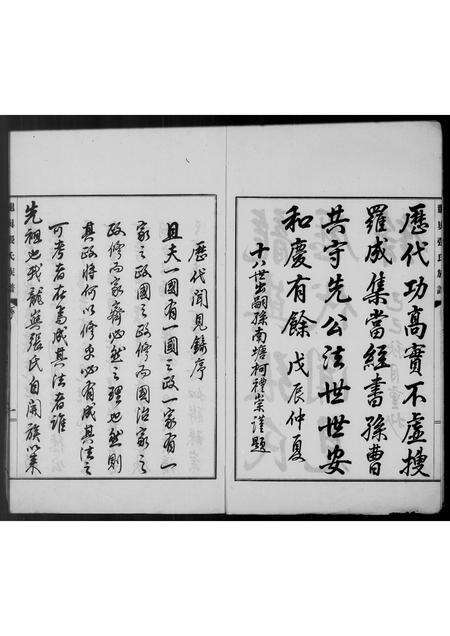 歷代功高實不虛搜
羅成集當經書孫曹
共守先公法世世安
和慶有餘 戊辰仲夏
十八世出嗣孫南塘柯禮崇謹題
歷代聞見錄序
且夫一國有一國之政一家有一
家之政國之政修而國治家之
政修而家齊必然之理也然則
其政將何以修也必有成其法之
可考者在焉成其法者誰
先祖也我龍興張氏自開族以來